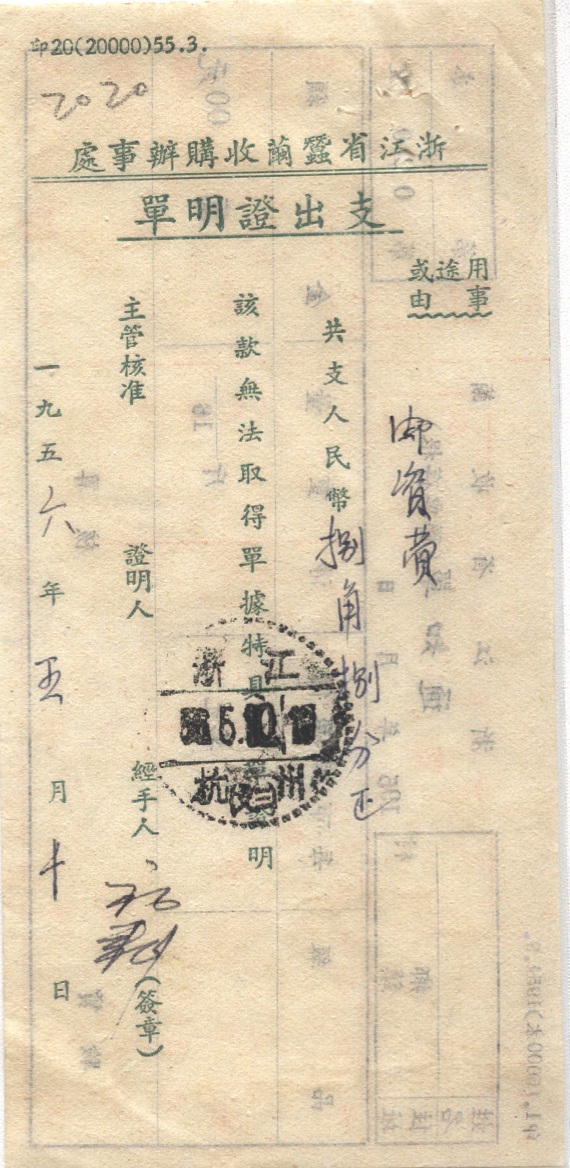 印20(20000)55.3.
2020
浙江省蠶繭收購辦事處
支出證明單
用途或
事由
郵資費
共支人民幣捌角捌分正
該款無法取得單據特具 單證明
主管核准 證明人 經手人 (簽章)
一九五六年五月十日
浙江
56.5.10.19
杭州